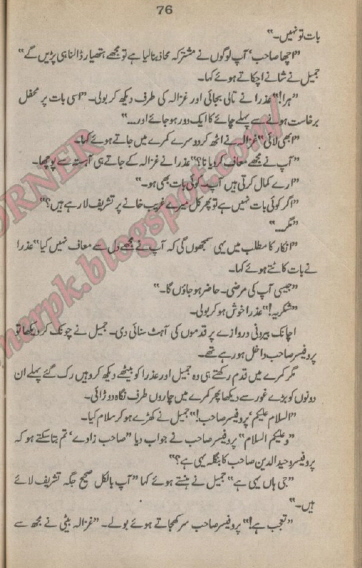 76
بات تو نہیں۔"
"اچھا صاحب‘ آپ لوگوں نے مشترکہ محاذ بنا لیا ہے تو مجھے ہتھیار ڈالنا ہی پڑیں گے"
جمیل نے شانے اچکاتے ہوئے کہا۔
"ہرا!" عذرا نے تالی بجائی اور غزالہ کی طرف دیکھ کر بولی۔ "اسی بات پر محفل
برخاست ہونے سے پہلے چائے کا ایک دور ہو جائے اور۔۔۔"
"ابھی لائی" غزالہ نے اٹھ کر دوسرے کمرے میں جاتے ہوئے کہا۔
"آپ نے مجھے معاف کر دیا نا؟" عذرا نے غزالہ کے جاتے ہی آہستہ سے پوچھا۔
"ارے کمال کرتی ہیں آپ۔ کوئی بات بھی ہو۔"
"اگر کوئی بات نہیں ہے تو پھر کل میرے غریب خانے پر تشریف لا رہے ہیں؟"
"مگر۔۔۔"
"انکار کا مطلب میں یہی سمجھوں گی کہ آپ نے مجھے دل سے معاف نہیں کیا" عذرا
نے بات کاٹتے ہوئے کہا۔
"جیسی آپ کی مرضی۔ حاضر ہو جاؤں گا۔"
"شکریہ!" عذرا خوش ہو کر بولی۔
اچانک بیرونی دروازے پر قدموں کی آہٹ سنائی دی۔ جمیل نے چونک کر دیکھا تو
پروفیسر صاحب داخل ہو رہے تھے۔
مگر کمرے میں قدم رکھتے ہی وہ جمیل اور عذرا کو بیٹھے دیکھ کر وہیں رک گئے پہلے ان
دونوں کو بڑے غور سے دیکھا پھر کمرے میں چاروں طرف نگاہ دوڑائی۔
"السلام علیکم‘ پروفیسر صاحب!" جمیل نے کھڑے ہو کر سلام کیا۔
"وعلیکم السلام" پروفیسر صاحب نے جواب دیا "صاحب زادے‘ تم بتا سکتے ہو کہ
پروفیسر وحید الدین صاحب کا بنگلہ یہی ہے؟"
"جی ہاں یہی ہے" جمیل نے ہنستے ہوئے کہا "آپ بالکل صحیح جگہ تشریف لائے
ہیں۔"
"تعجب ہے!" پروفیسر صاحب سر کھجاتے ہوئے بولے۔ "غزالہ بیٹی نے مجھ سے